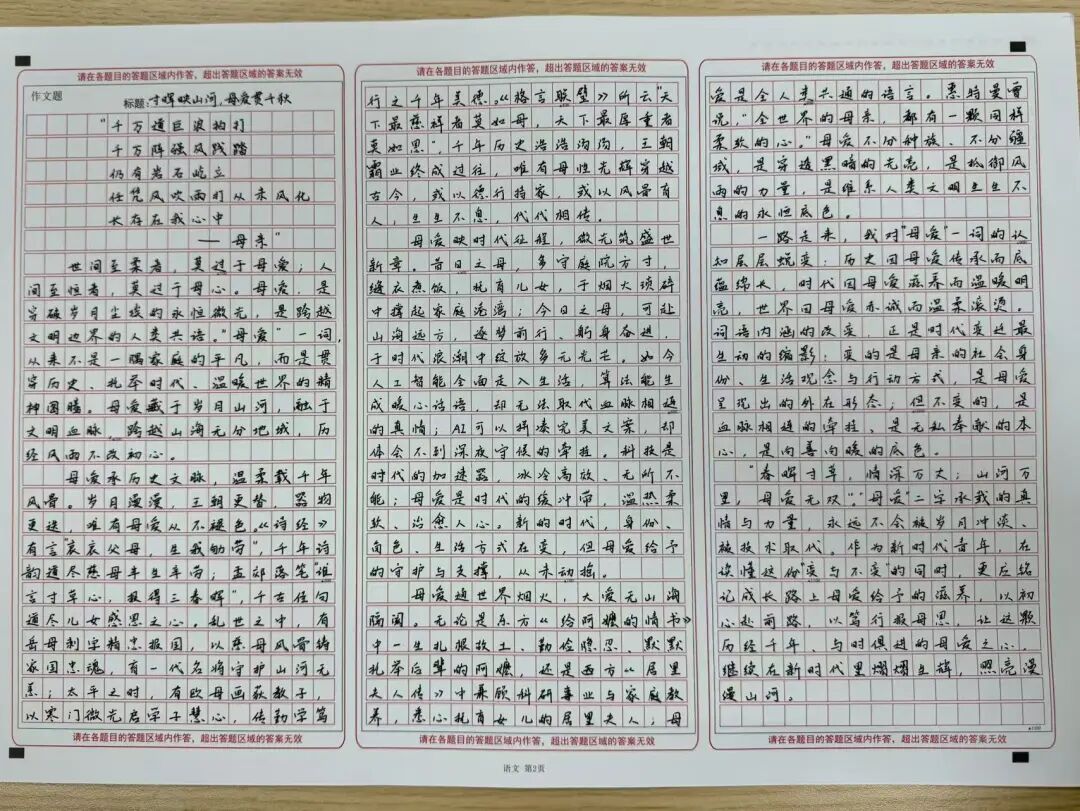 请在各题目的答题区域内作答，超出答题区域的答案无效
作文题
标题：寸晖映山河，母爱贯千秋
“千万道巨浪拍打
千万阵强风践踏
仍有岩石屹立
任凭风吹雨打从未风化
长存在我心中
——母亲”
世间至柔者，莫过于母爱；人
间至恒者，莫过于母心。母爱，是
穿破岁月尘埃的永恒微光，是跨越
文明边界的人类共语。“母爱”一词，
从来不是一隅家庭的平凡，而是贯
穿历史、托举时代、温暖世界的精
神图腾。母爱藏于岁月山河，融于
文明血脉，跨越山海无分地域，历
经风雨不改初心。
母爱承历史文脉，温柔载千年
风骨。岁月漫漫，王朝更替，器物
更迭，唯有母爱从不褪色。《诗经》
有言“哀哀父母，生我劬劳”，千年诗
韵道尽慈母半生辛劳；孟郊落笔“谁
言寸草心，报得三春晖”，千古佳句
道尽儿女感恩之心。乱世之中，有
岳母刺字精忠报国，以慈母风骨铸
家国忠魂，育一代名将守护山河无
恙；太平之时，有欧母画荻教子，
以寒门微光启学子慧心，传勤学笃
请在各题目的答题区域内作答，超出答题区域的答案无效
请在各题目的答题区域内作答，超出答题区域的答案无效
行之千年美德。《格言联璧》所云“天
下最慈祥者莫如母，天下最厚重者
莫如恩”，千年历史浩浩汤汤，王朝
霸业终成过往，唯有母性光辉穿越
古今，或以德行持家，或以风骨育
人，生生不息，代代相传。
母爱映时代征程，微光筑盛世
新章。昔日之母，多守庭院方寸，
缝衣煮饭，抚育儿女，于烟火琐碎
中撑起家庭港湾；今日之母，可赴
山海远方，逐梦前行、躬身奋进，
于时代浪潮中绽放多元光芒。如今
人工智能全面走入生活，算法能生
成暖心话语，却无法取代血脉相连
的真情；AI可以拼凑完美文案，却
体会不到深夜守候的牵挂。科技是
时代的加速器，冰冷高效、无所不
能；母爱是时代的缓冲带，温热柔
软、治愈人心。新的时代，身份、
角色、生活方式在变，但母爱给予
的守护与支撑，从未动摇。
母爱通世界烟火，大爱无山海
隔阂。无论是东方《给阿嬷的情书》
中一生扎根故土、勤俭隐忍、默默
托举后辈的阿嬷，还是西方《居里
夫人传》中兼顾科研事业与家庭教
养，悉心抚育女儿的居里夫人；母
请在各题目的答题区域内作答，超出答题区域的答案无效
请在各题目的答题区域内作答，超出答题区域的答案无效
爱是全人类共通的语言。惠特曼曾
说，“全世界的母亲，都有一颗同样
柔软的心。”母爱不分种族、不分疆
域，是穿透黑暗的光亮，是抵御风
雨的力量，是维系人类文明生生不
息的永恒底色。
一路走来，我对“母爱”一词的认
知层层蜕变：历史因母爱传承而底
蕴绵长，时代因母爱滋养而温暖明
亮，世界因母爱赤诚而温柔滚烫。
词语内涵的改变，正是时代变迁最
生动的缩影：变的是母亲的社会身
份、生活观念与行动方式，是母爱
呈现出的外在形态；但不变的，是
血脉相连的牵挂、是无私奉献的本
心，是向善向暖的底色。
“春晖寸草，情深万丈；山河万
里，母爱无双”。“母爱”二字承载的真
情与力量，永远不会被岁月冲淡、
被技术取代。作为新时代青年，在
读懂这份“变与不变”的同时，更应铭
记成长路上母爱给予的滋养，以初
心赴前路，以笃行报母恩，让这颗
历经千年、与时俱进的母爱之心，
继续在新时代里熠熠生辉，照亮漫
漫山河。
请在各题目的答题区域内作答，超出答题区域的答案无效
语文 第2页